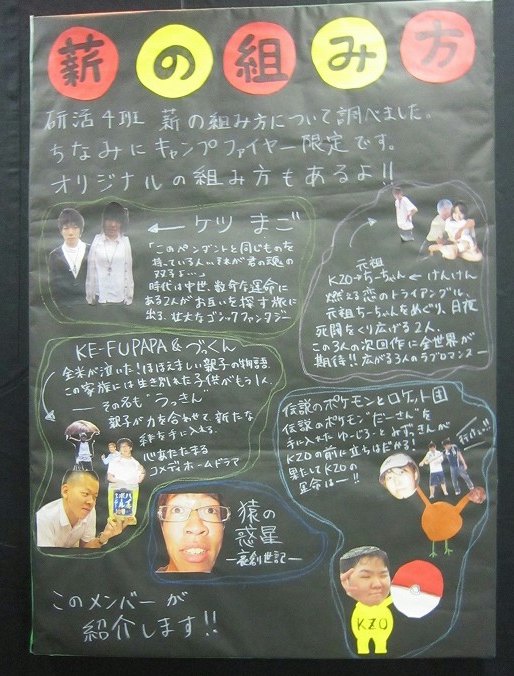 薪の組み方
研活4班 薪の組み方について調べました。
ちなみにキャンプファイヤー限定です。
オリジナルの組み方もあるよ!!
← ケツまご
「このペンダントと同じものを
持っている人…それが君の魂の
双子よ…」
時代は中世、数奇な運命に
ある2人がお互いを探す旅に
出る、壮大なゴシックファンタジー
元祖
KZO→ちーちゃん←けんけん
燃える恋のトライアングル。
元祖ちーちゃんをめぐり、日夜
死闘をくり広げる2人。
この3人の次回作に全世界が
期待!!広がる3人のラブロマンス―
KE-FUPAPA&づっくん
全米が泣いた!ほほえましい親子の物語
この家族には生き別れた子供がもう1人、
―その名も"うっさん"
親子が力を合わせて、新たな
手に入る
心あたたまる
コメディホームドラマ
伝説のポケモンとロケット団
伝説のポケモン"だーさん"を
手に入れたゆーじろーとみずっさんが
KZOの前に立ちはだかる!
果たしてKZOの
運命は―!!
行けぇ!!
ハイ
ボール
猿の
惑星
―創世記―
KZO
このメンバーが
紹介します!!